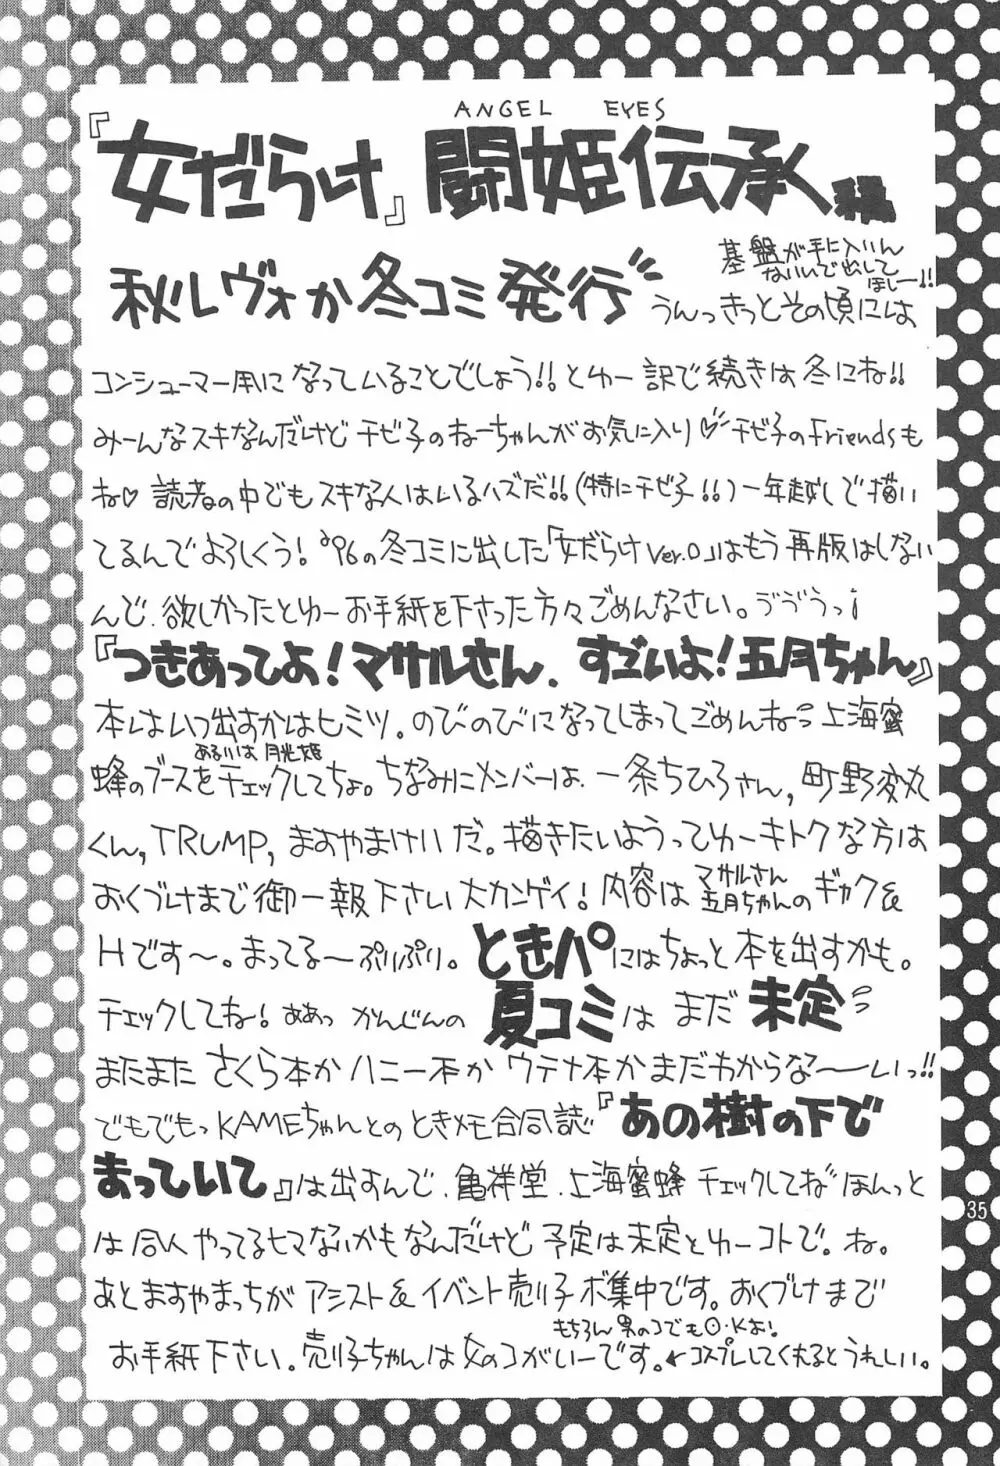 ANGEL EYES
『女だらけ』闘姫伝承編
秋レヴォか冬コミ発行
基盤が手に入いん
ないんで出して
ほしー!!
うんっきっとその頃には
コンシューマー用になっていることでしょう!!とゆー訳で続きは冬にね!!
みーんなスキなんだけどチビ子のねーちゃんがお気に入り♡チビ子のFriendsも
ね♡読者の中でもスキな人はいるハズだ!!(特にチビ子!!)一年越しで描い
てるんでよろしくう!'96の冬コミに出した「女だらけVer.0」はもう再版はしない
んで、欲しかったとゆーお手紙を下さった方々ごめんなさい。ううううっ¡
『つきあってよ!マサルさん、すごいよ!五月ちゃん』
本はいつ出すかはヒミツ。のびのびになってしまってごめんね 上海蜜
あるいは月光姫
蜂のブースをチェックしてちょ。ちなみにメンバーは、一条ちひろさん,町野変丸
くん,TRUMP,ますやまけいだ。描きたいようってゆーキトクな方は
おくづけまで御一報下さい大カンゲイ!内容はマサルさん五月ちゃんのギャグ&
Hです〜。まってる〜ぷりぷり。ときパにはちょっと本を出すかも。
チェックしてね!ああっかんじんの夏コミはまだ未定
またまたさくら本かハニー本かウテナ本かまだわからな〜ーいっ!!
でもでもっKAMEちゃんとのときメモ合同誌『あの樹の下で
まっていて』は出すんで、亀祥堂、上海蜜蜂チェックしてね ほんっと
は同人やってるヒマないかもなんだけど予定は未定とゆーコトで。ね。
あとますやまっちがアシスト&イベント売り子ボ集中です。おくづけまで
もちろん男のコでもO・Kよ!
お手紙下さい。売り子ちゃんは女のコがいーです。←コスプレしてくれるとうれしい。
35